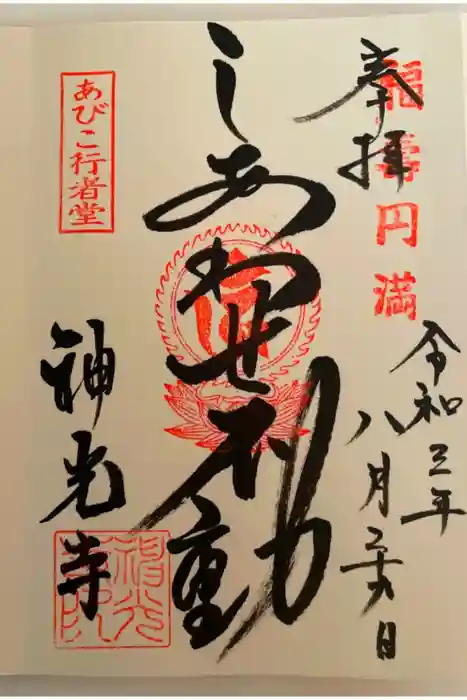 奉拝
福寿円満
令和三年
八月
日
しあわせ不動
あびこ行者堂
神光寺